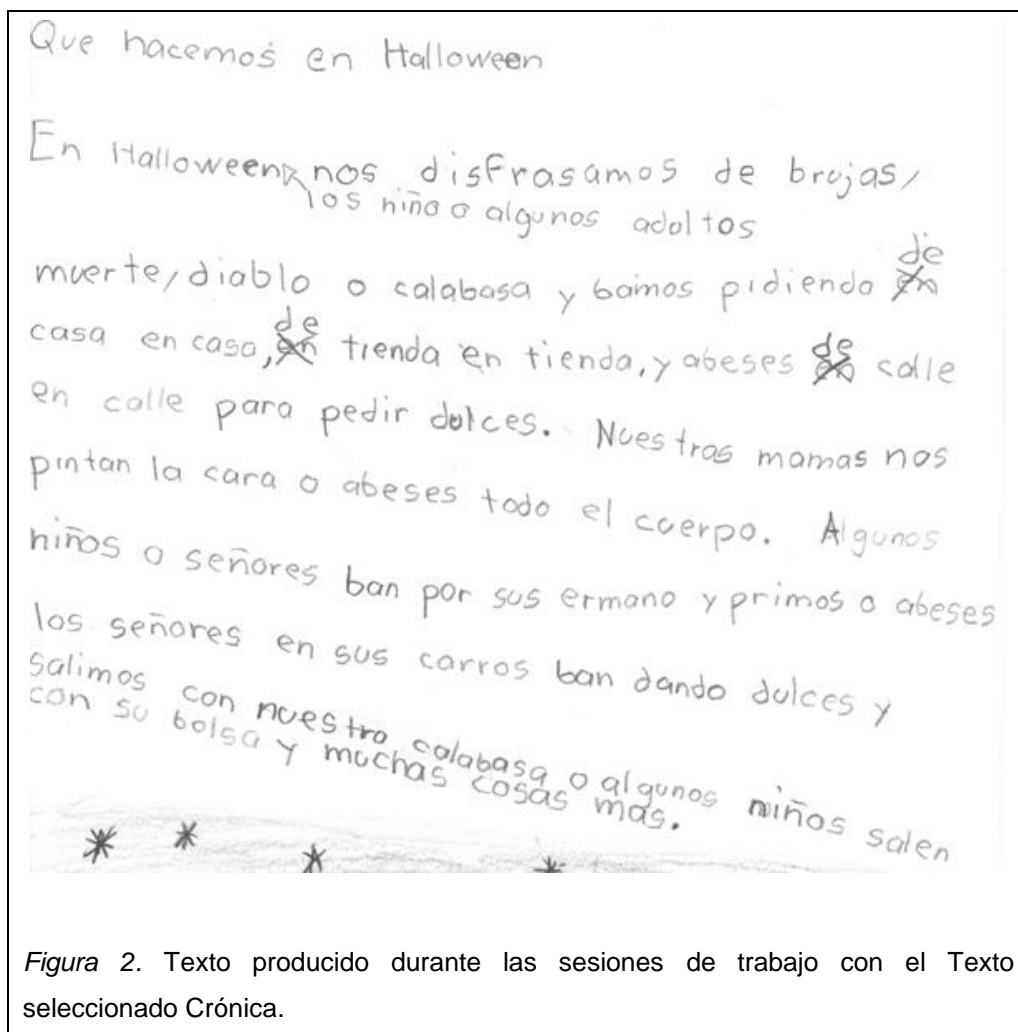 Que hacemos en Halloween
En Halloween nos disfrasamos de brujas,
los niño o algunos adultos
muerte, diablo o calabasa y baimos pidiendo de
casa en casa, de tienda en tienda, y abeses de calle
en calle para pedir dulces. Nuestras mamas nos
pintan la cara o abeses todo el cuerpo. Algunos
niños o señores ban por sus ermano y primos o abeses
los señores en sus carros ban dando dulces y
salimos con nuestra calabasa o algunos niños salen
con su bolsa y muchas cosas mas.
Figura 2. Texto producido durante las sesiones de trabajo con el Texto
seleccionado Crónica.